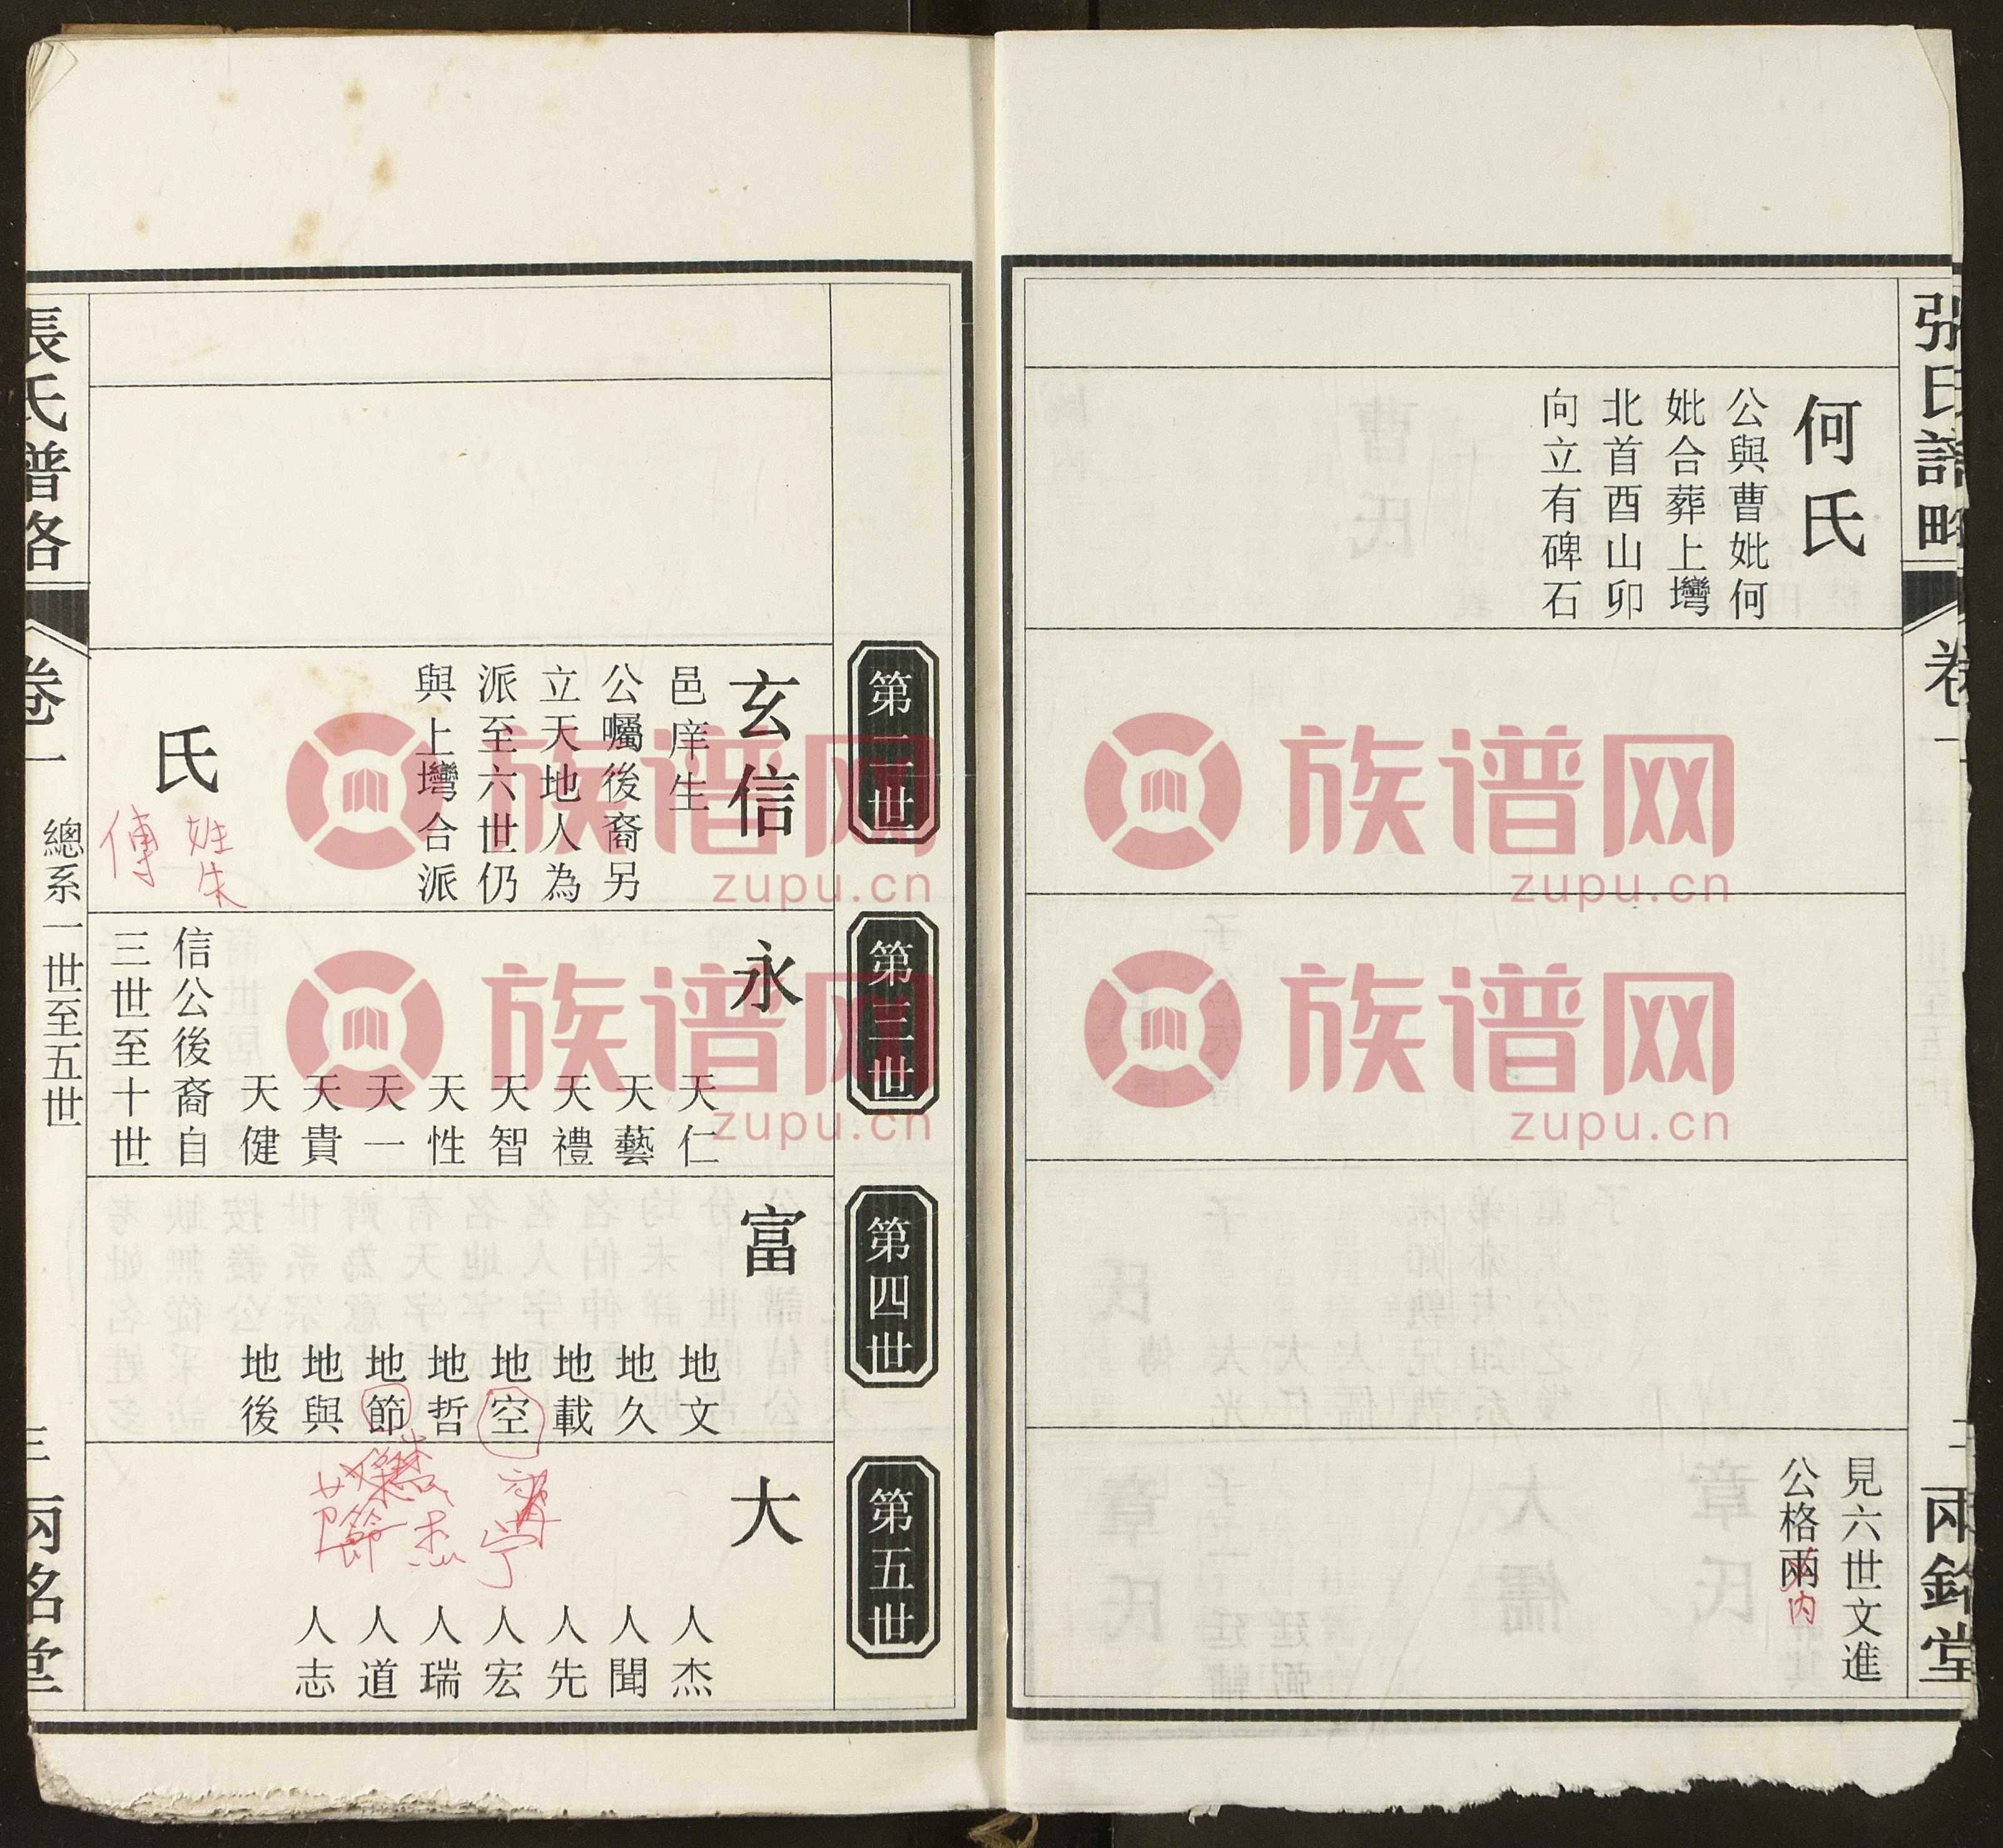 張氏譜略
卷一
兩銘堂
何氏
公與曹妣何
妣合葬上壪
北首酉山卯
向立有碑石
見六世文進
公格兩
内
第二世
第三世
第四世
第五世
玄信
邑庠生
公囑後裔另
立天地人為
派至六世仍
與上壪合派
氏
姓朱
傳
永
天仁
天藝
天禮
天智
天性
天一
天貴
天健
信公後裔自
三世至十世
富
地文
地久
地載
地空
地哲
地節
地與
地後
大
寧
宁
杰
節
人杰
人聞
人先
人宏
人瑞
人道
人志
張氏譜略
卷一
總系一世至五世
三
兩銘堂
族谱网
zupu.cn
族谱网
zupu.cn
族谱网
zupu.cn
族谱网
zupu.cn